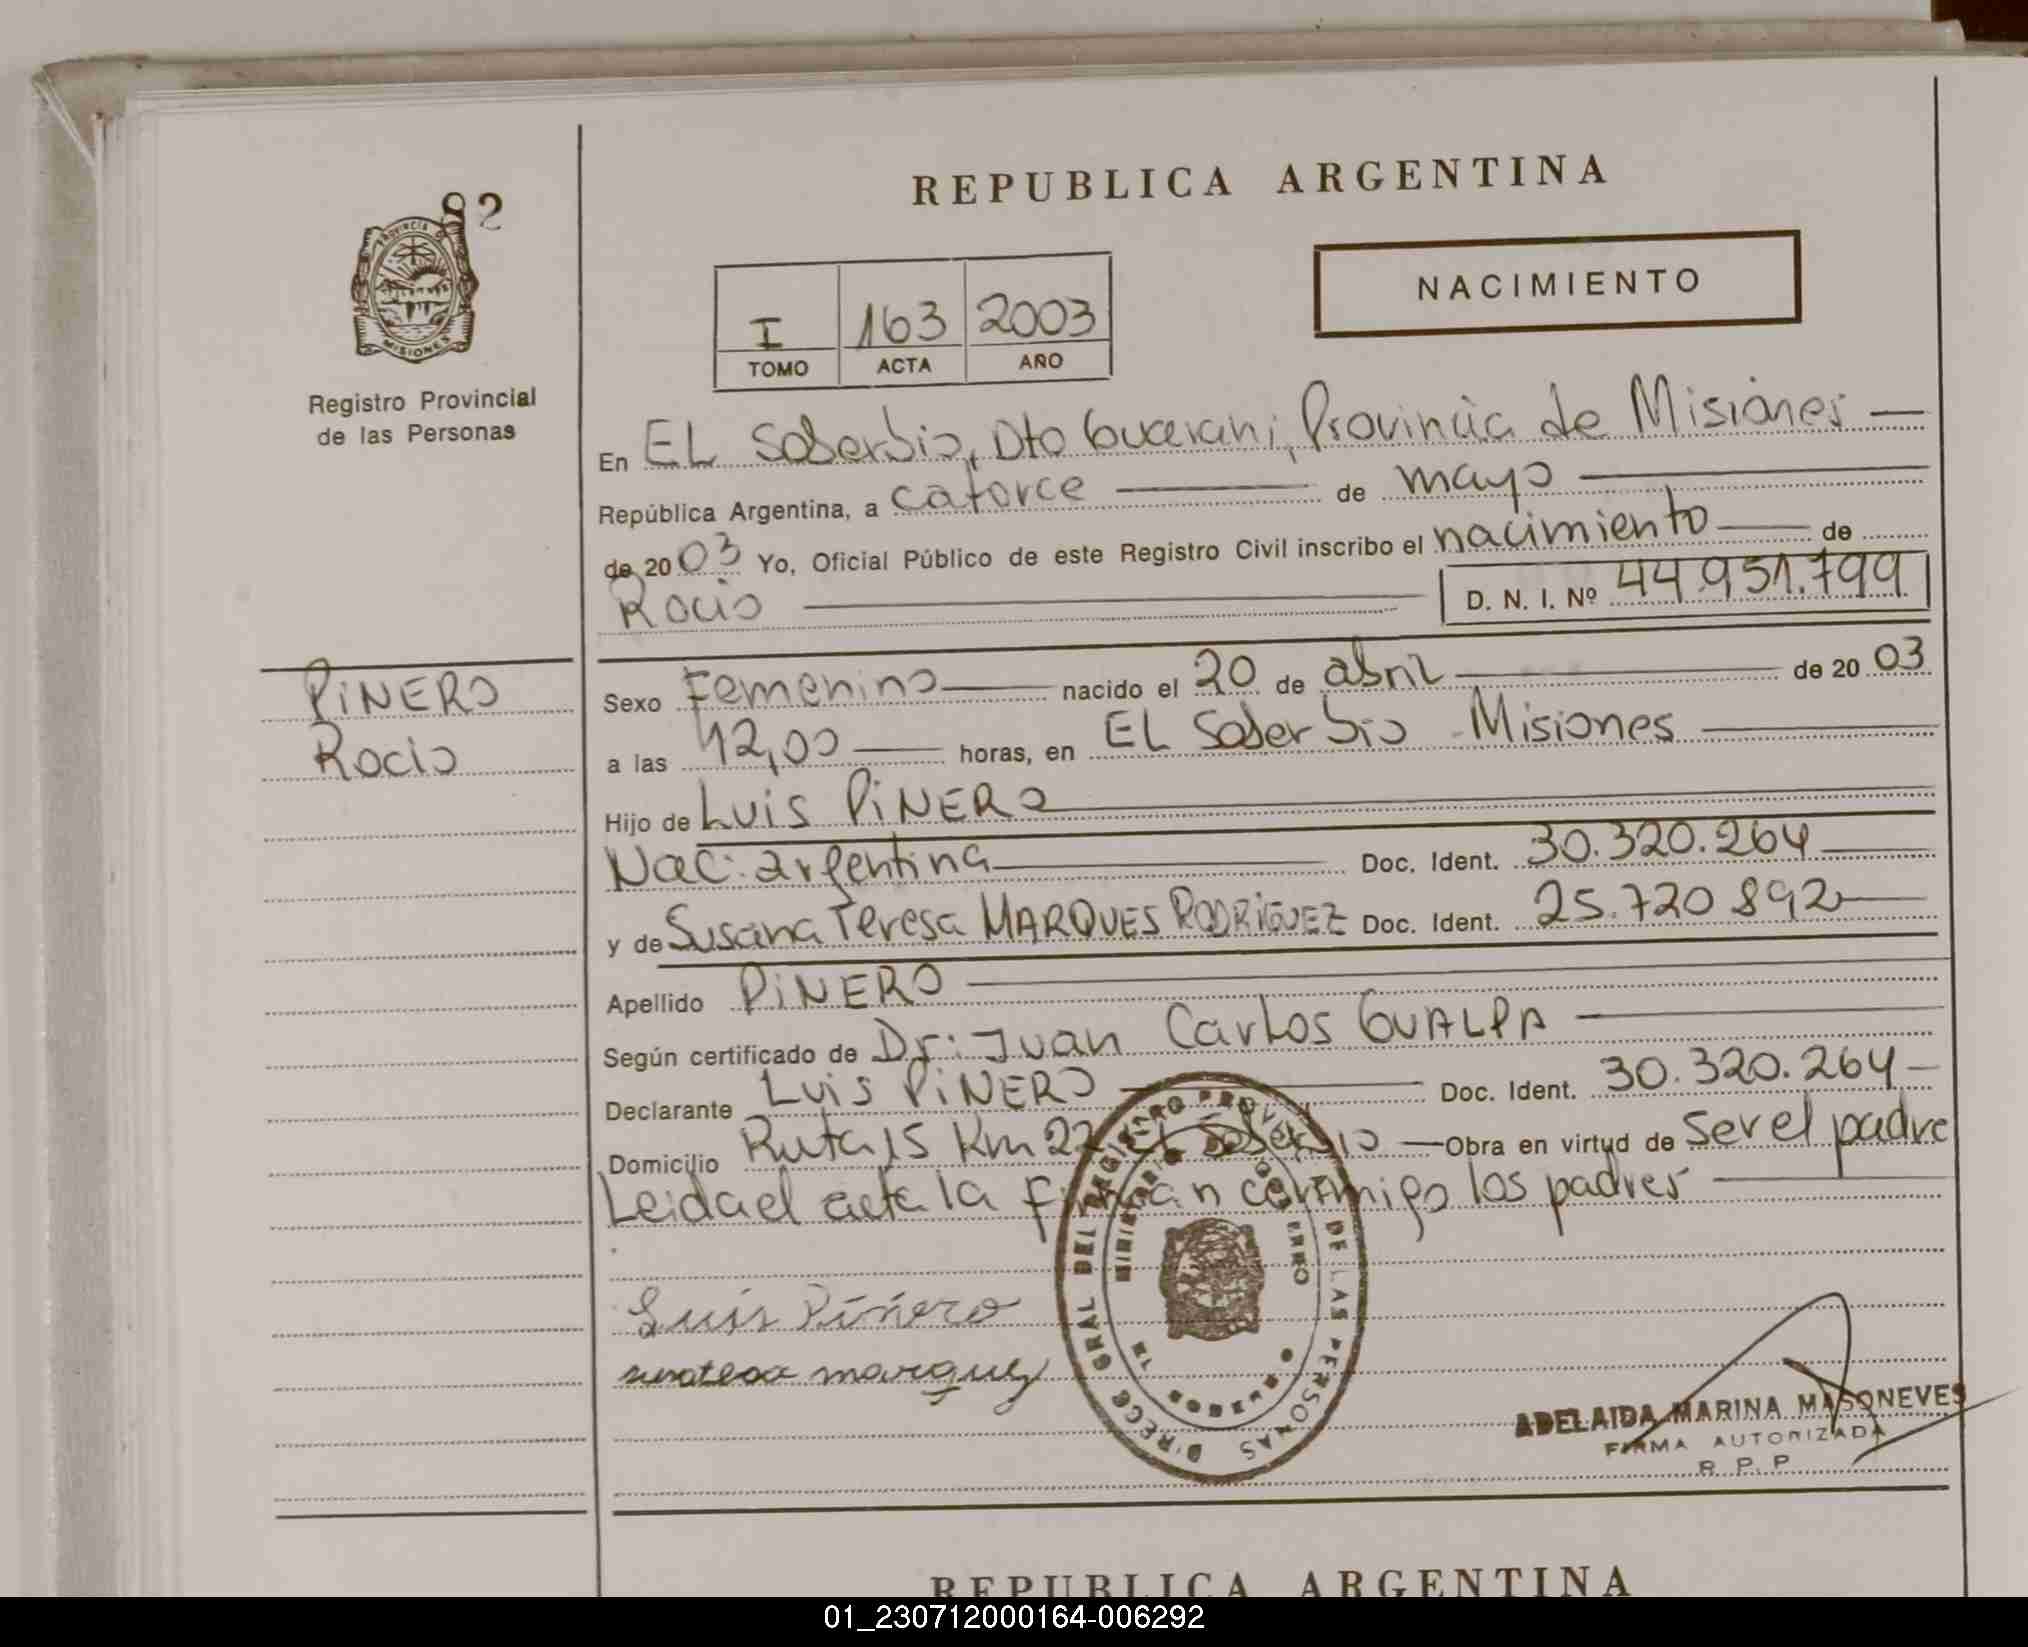 92
PROVINCIA D
MISIONES
Registro Provincial
de las Personas
PiNERO
Rocio
REPUBLICA ARGENTINA
NACIMIENTO
I 163 2003
TOMO ACTA AÑO
En EL Soberbio, Dto Guarani, Provincia de Misiones
República Argentina, a catorce de mayo
de 2003 Yo, Oficial Público de este Registro Civil inscribo el nacimiento de
Rocio D. N. I. Nº 44.951.799
Sexo Femenino nacido el 20 de abril de 2003
a las 12,00 horas, en EL Soberbio - Misiones
Hijo de Luis PiNERO
Nac: argentina Doc. Ident. 30.320.264
y de Susana Teresa MARQUES RODRiGUEZ Doc. Ident. 25.720.892
Apellido PiNERO
Según certificado de Dr: Juan Carlos GUALPA
Declarante Luis PiNERO Doc. Ident. 30.320.264
Domicilio Ruta 15 Km 22 El Soberbio Obra en virtud de ser el padre
Leida el acta la firman conmigo los padres
Luis Piñero
marquez
DIRECC GRAL DEL REGISTRO PROV DE LAS PERSONAS
MINISTERIO DE GOBIERNO
MISIONES
ADELAIDA MARINA MASONEVES
FIRMA AUTORIZADA
R. P. P
REPUBLICA ARGENTINA
01_230712000164-006292